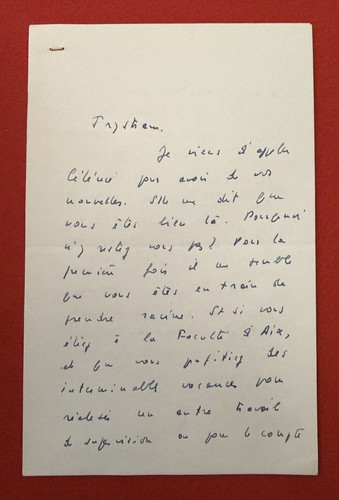 Trystram.
Je viens d'appeler
Célénié pour avoir de vos
nouvelles. Elle me dit que
vous êtes bien là. Pourquoi
n'y restez vous pas? Pour la
première fois il me semble
que vous êtes en train de
prendre racine. Et si vous
étiez à la Faculté d'Aix,
et que vous profitiez des
interminables vacances pour
réaliser un autre travail
de supervision ou pour le compte